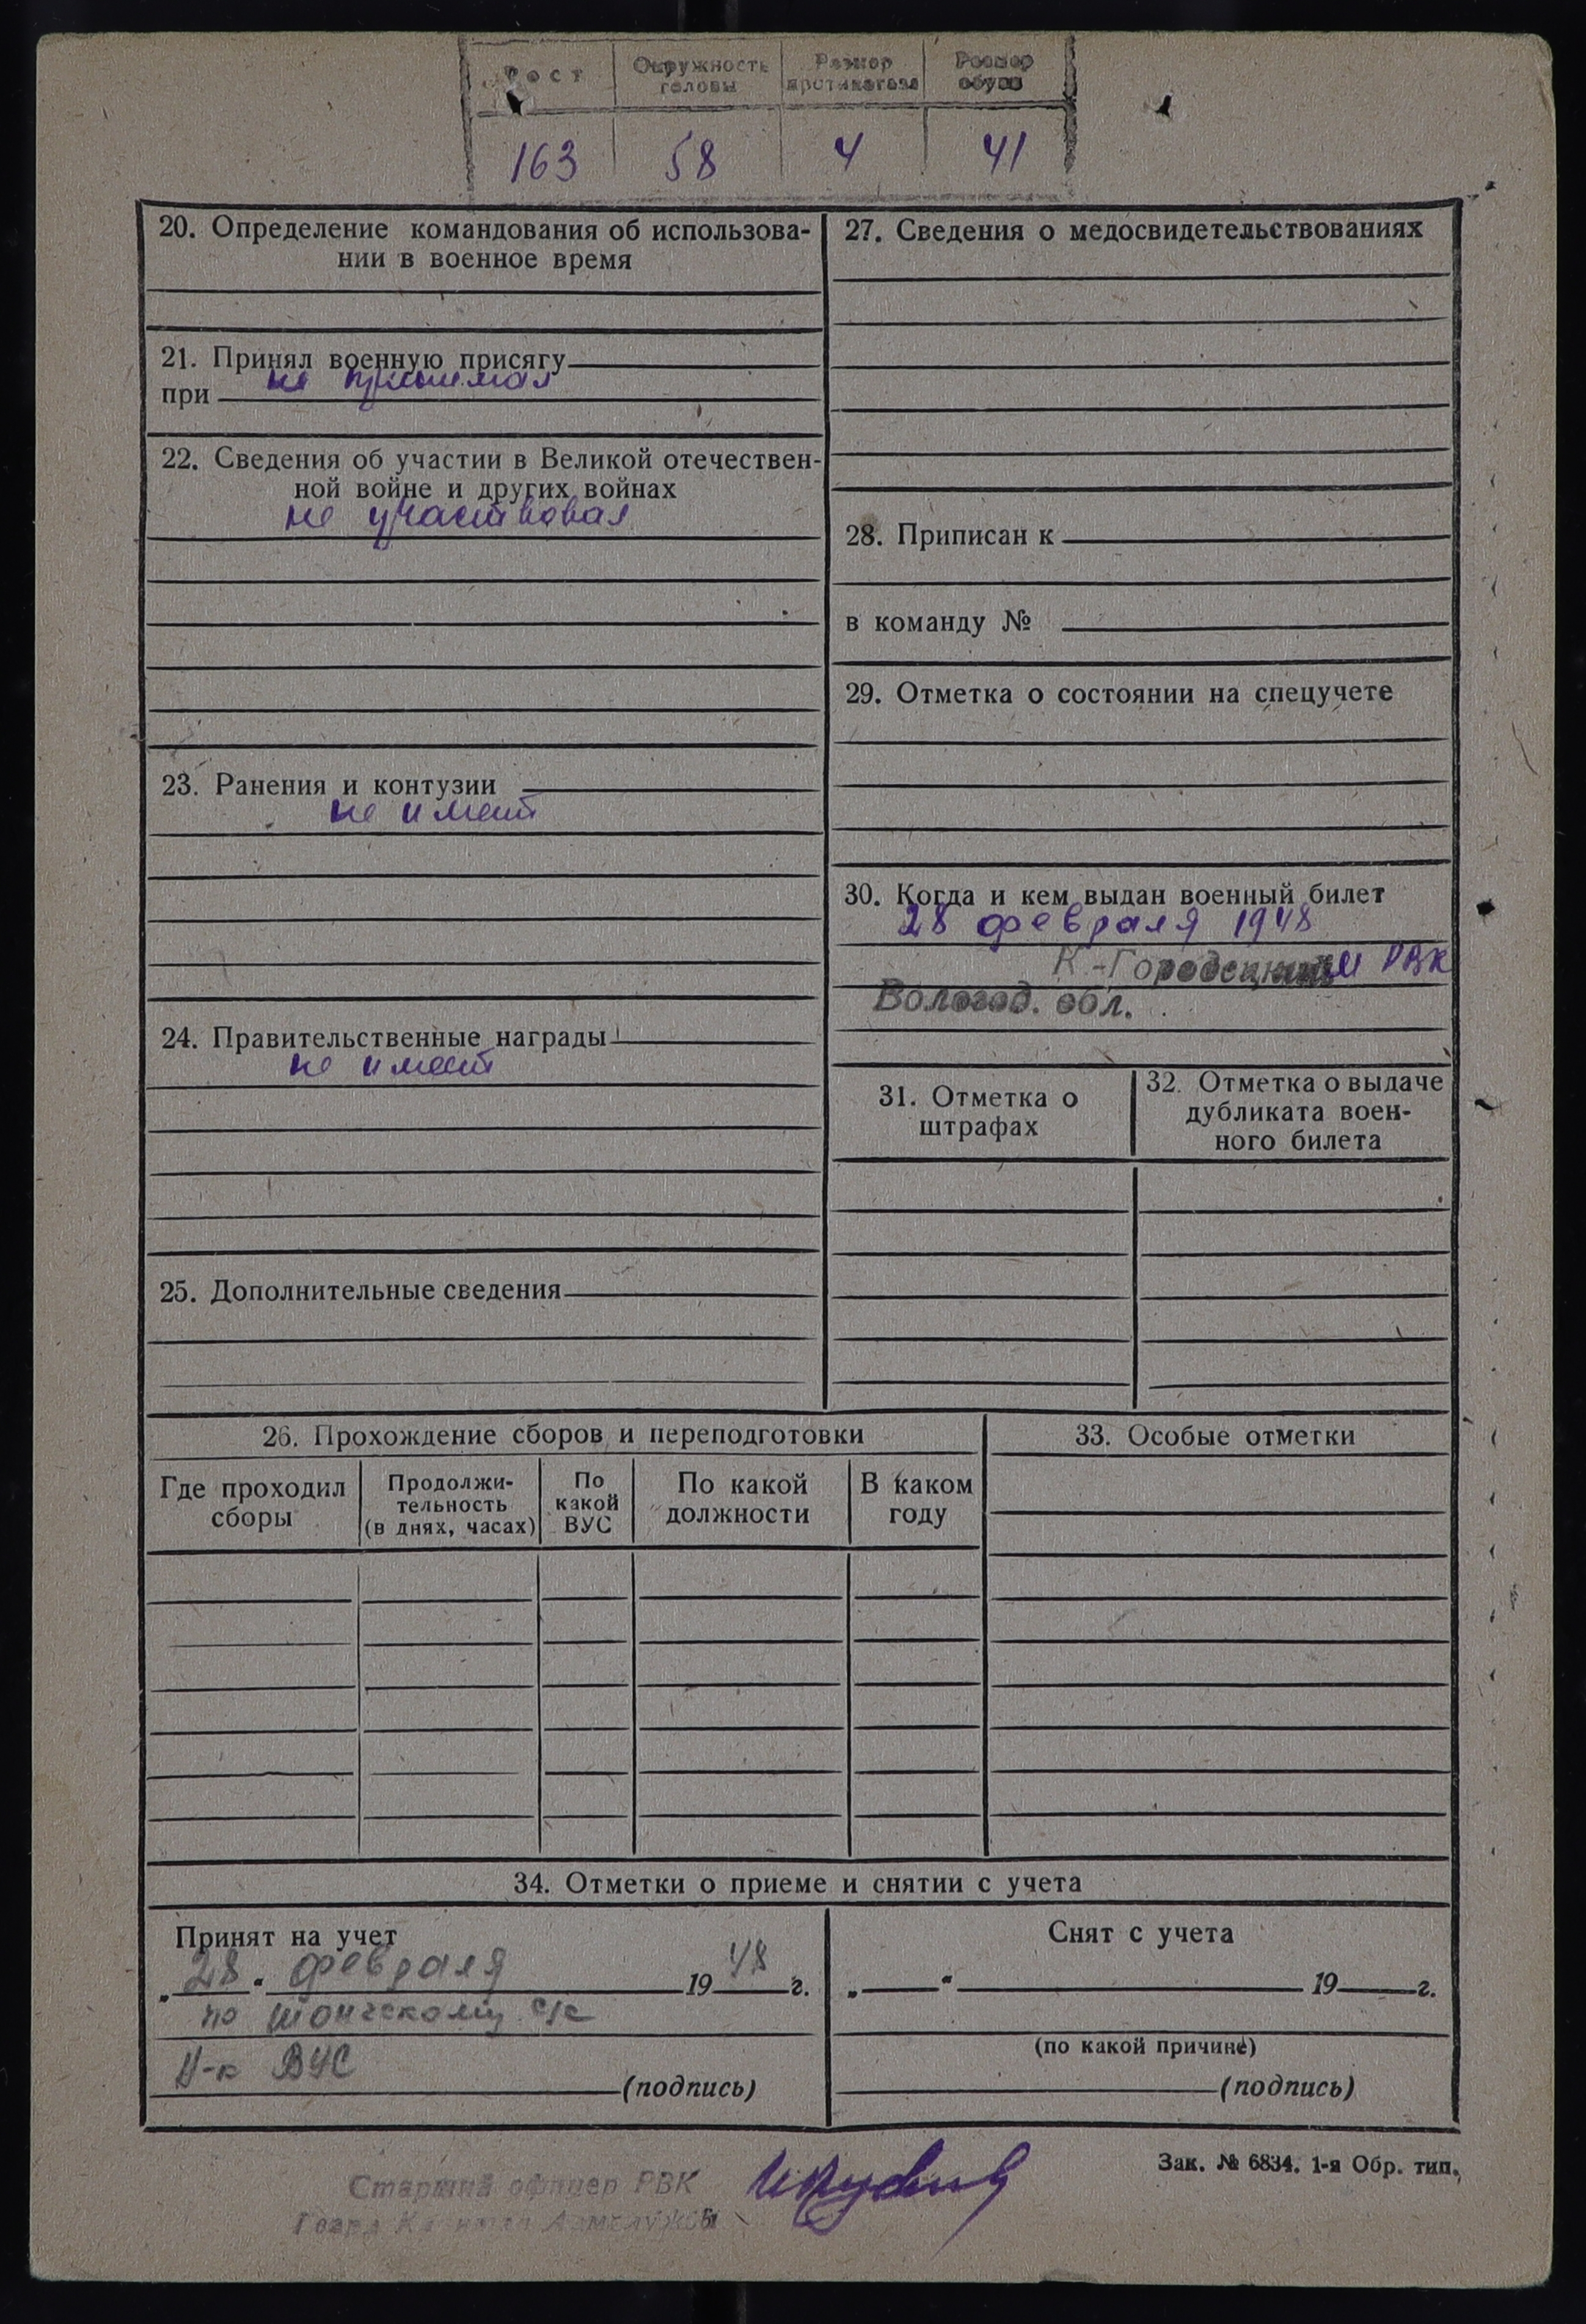 Рост Окружность головы Размер противогаза Размер обуви
163 58 4 41
20. Определение командования об использова-
нии в военное время
21. Принял военную присягу
при не принимал
22. Сведения об участии в Великой отечествен-
ной войне и других войнах
не участвовал
23. Ранения и контузии
не имеет
24. Правительственные награды
не имеет
25. Дополнительные сведения
27. Сведения о медосвидетельствованиях
28. Приписан к
в команду №
29. Отметка о состоянии на спецучете
30. Когда и кем выдан военный билет
28 февраля 1948
К-Городецким РВК
Вологод. обл.
31. Отметка о
штрафах
32. Отметка о выдаче
дубликата воен-
ного билета
26. Прохождение сборов и переподготовки
Где проходил
сборы
Продолжи-
тельность
(в днях, часах)
По
какой
ВУС
По какой
должности
В каком
году
33. Особые отметки
34. Отметки о приеме и снятии с учета
Принят на учет
„28" февраля 1948 г.
по Шонгскому с/с
Н-к ВУС
(подпись)
Снят с учета
„ " 19 г.
(по какой причине)
(подпись)
Зак. № 6834. 1-я Обр. тип.
Старший офицер РВК